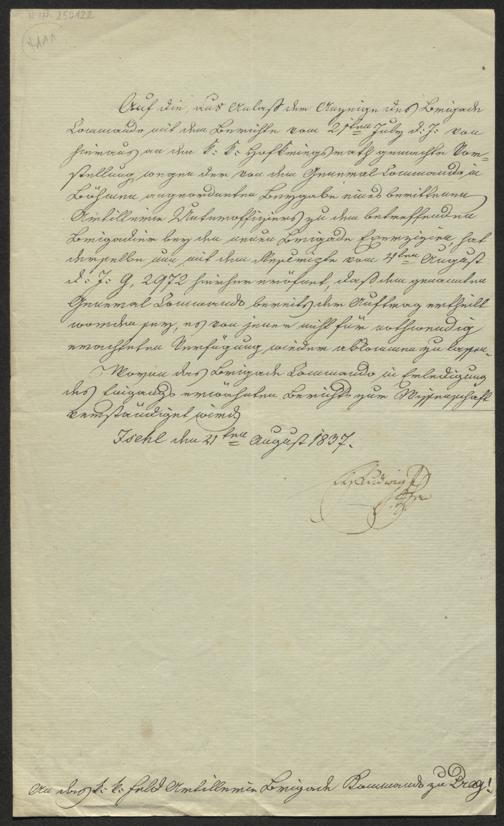 250122
Auf die, aus Anlaß der Anzeige des Brigade
Commando mit dem Berichte vom 25ten July d: J: von
hieraus an den k: k: Hofkriegsrath gemachte Vor-
stellung wegen der von dem General Commando in
Böhmen angeordneten Beygabe eines berittenen
Artillerie Unteroffiziers zu dem betreffenden
Brigadier bey den neuen Brigade Exerzizien, hat
derselbe nun mit dem Rescripte vom 4ten August
d: J: G, 2972 hierher eröfnet, daß dem genannten
General Commando bereits der Auftrag ertheilt
worden sey, es von jener nicht für nothwendig
erachteten Verfügung wieder abkommen zu lassen.
Wovon das Brigade Commando in Erledigung
des Eingangs erwähnten Berichts zur Wissenschaft
verständiget wird
Ischl den 21ten August 1837.
Ludwig
An das k: k: Feld Artillerie Brigade Kommando zu Prag!